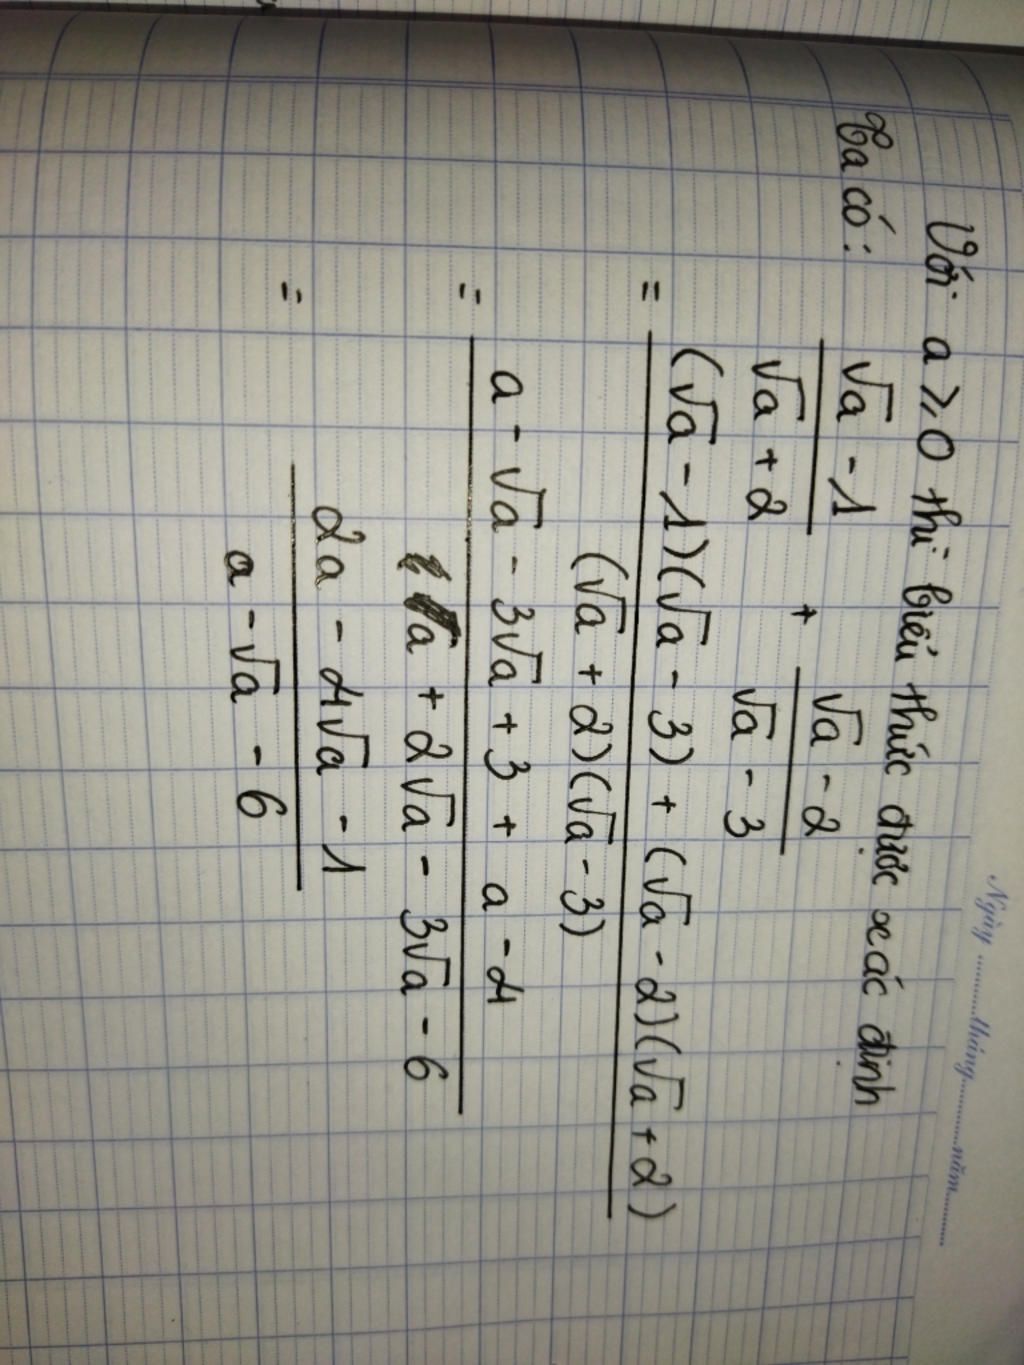 Ngày ......... tháng ......... năm .........
Với a ⩾ 0 thì biểu thức được xác định
Ta có:
√a - 1 / √a + 2 + √a - 2 / √a - 3
= (√a - 1)(√a - 3) + (√a - 2)(√a + 2) / (√a + 2)(√a - 3)
= a - √a - 3√a + 3 + a - 4 / a + 2√a - 3√a - 6
= 2a - 4√a - 1 / a - √a - 6